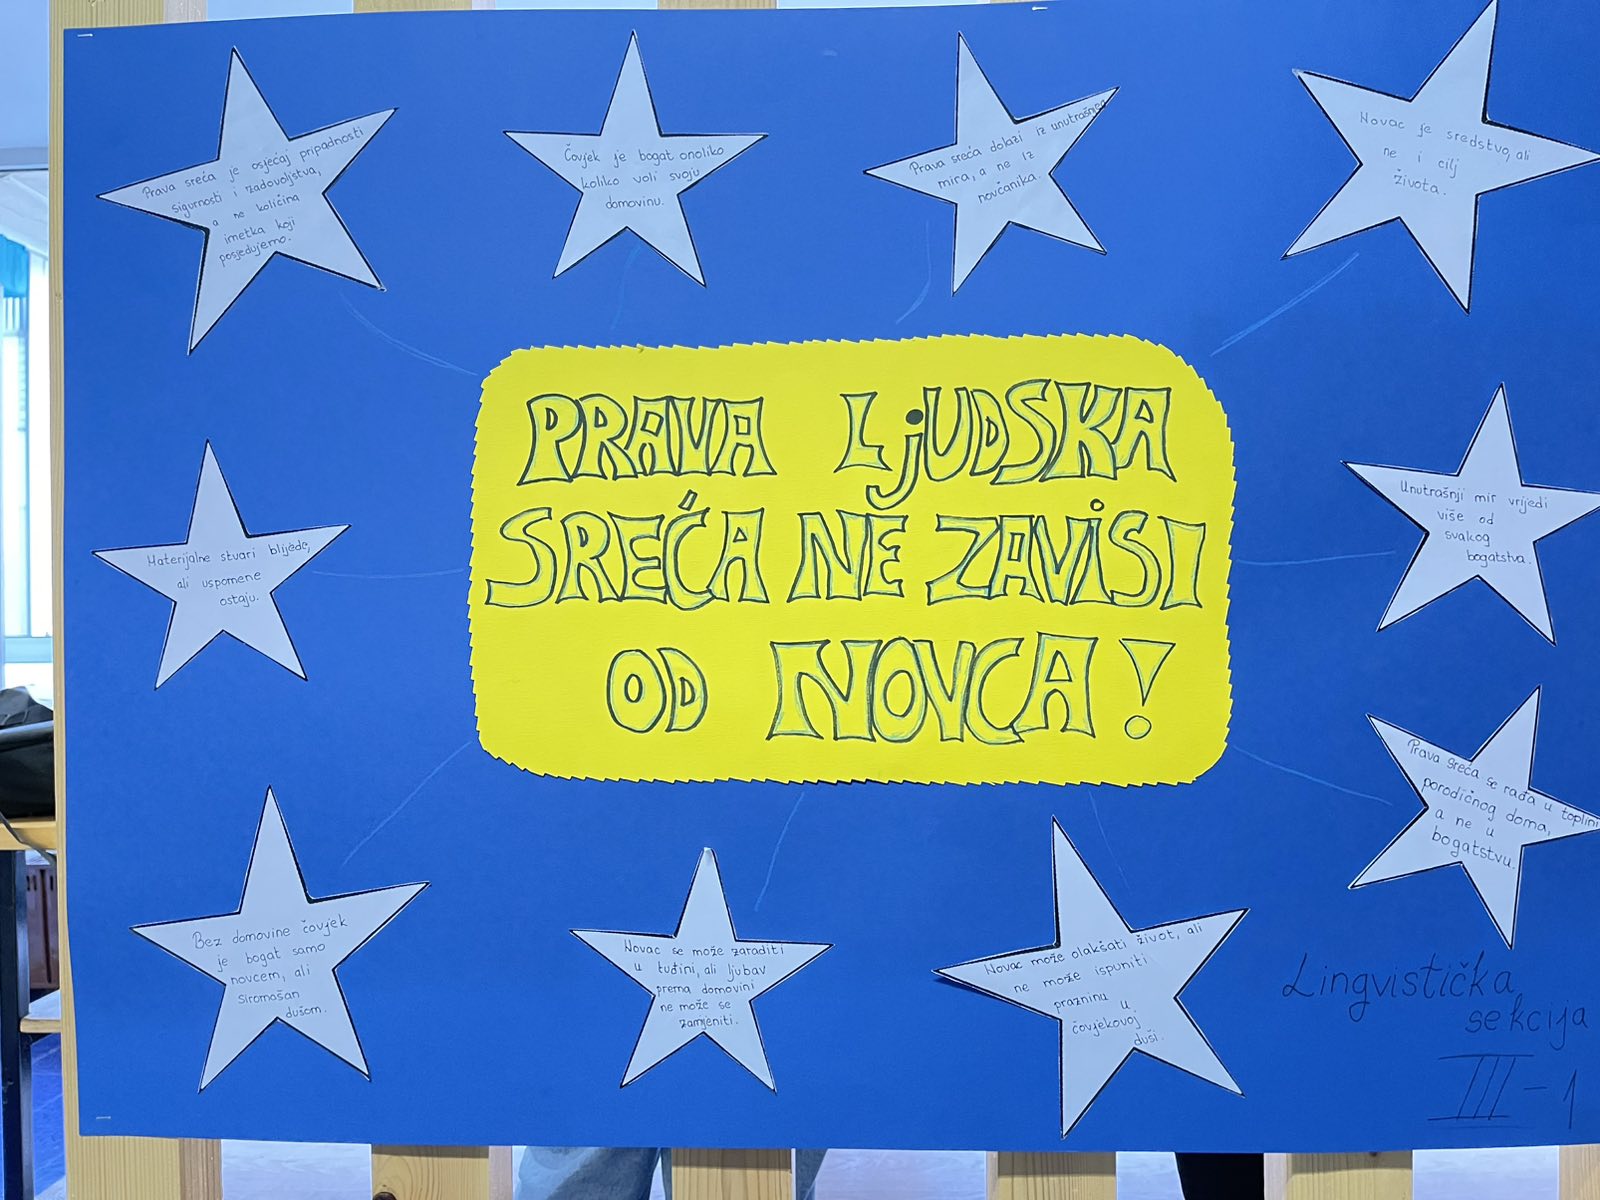 Prava sreća je osjećaj pripadnosti
sigurnosti i zadovoljstva,
a ne količina
imetka koji
posjedujemo.
Čovjek je bogat onoliko
koliko voli svoju
domovinu.
Prava sreća dolazi iz unutrašnjeg
mira, a ne iz
novčanika.
Novac je sredstvo, ali
ne i cilj
života.
PRAVA LjUDSKA
SREĆA NE ZAVISI
OD NOVCA!
Materijalne stvari blijede,
ali uspomene
ostaju.
Unutrašnji mir vrijedi
više od
svakog
bogatstva.
Prava sreća se rađa u toplini
porodičnog doma,
a ne u
bogatstvu.
Bez domovine čovjek
je bogat samo
novcem, ali
siromašan
dušom.
Novac se može zaraditi
u tuđini, ali ljubav
prema domovini
ne može se
zamjeniti.
Novac može olakšati život, ali
ne može ispuniti
prazninu u
čovjekovoj
duši.
Lingvistička
sekcija
III-1